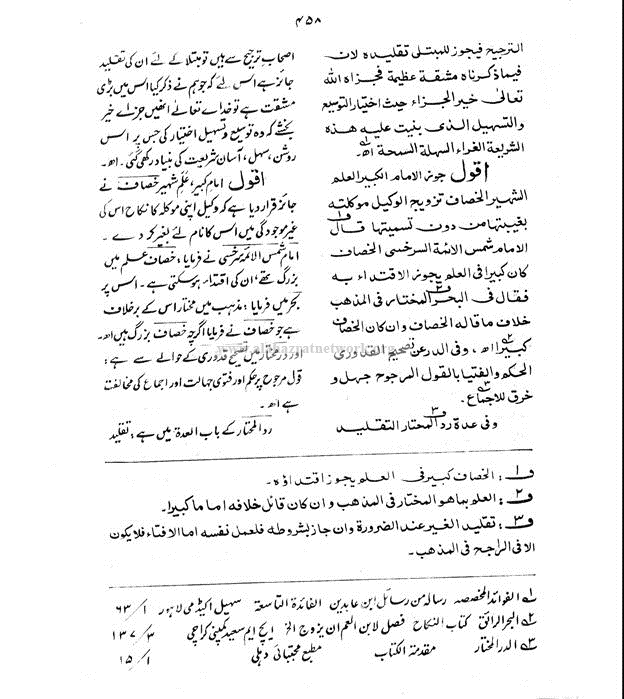 ۴۵۸
الترجیح فیجوز للمبتلی تقلیدہ لان
فیما ذکرناہ مشقة عظیمة فجزاہ اللہ
تعالیٰ خیر الجزاء حیث اختار التوسیع
والتسھیل الذی بنیت علیه ھذہ
الشریعة الغراء السهلة السمحة اھ۔
اقول جوز الامام الکبیر العلم
الشھیر الخصاف تزویج الوکیل موکلته
بغیبتھا من دون تسمیتھا قال
الامام شمس الائمة السرخسی الخصاف
کان کبیرا فی العلم یجوز الاقتداء به
فقال فی البحر المختار فی المذھب
خلاف ماقاله الخصاف وان کان الخصاف
کبیرا اھ، وفی الدر عن تصحیح القدوری
الحکم والفتیا بالقول المرجوح جھل و
خرق للاجماع۔
وفی عدة رد المحتار التقلید
اصحاب ترجیح سے ہیں تو مبتلا کے لئے ان کی تقلید
جائز ہے اس لئے کہ جو ہم نے ذکر کیا اس میں بڑی
مشقت ہے تو خدائے تعالےٰ انھیں جزائے خیر
بخشے کہ وہ توسیع و تسہیل اختیار کی جس پر اس
روشن، سہل، آسان شریعت کی بنیاد رکھی گئی۔ اھ۔
اقول امام کبیر، عَلَمِ شہیر خصاف نے
جائز قرار دیا ہے کہ وکیل اپنی موکلہ کا نکاح اس کی
غیر موجودگی میں اس کا نام لئے بغیر کر دے۔
امام شمس الائمہ سرخسی نے فرمایا: خصاف علم میں
بزرگ تھے، ان کی اقتداء ہو سکتی ہے۔ اس پر
بحر میں فرمایا: مذہب میں مختار اس کے برخلاف
ہے جو خصاف نے فرمایا اگرچہ خصاف بزرگ ہیں اھ۔
اور درمختار میں تصحیح قدوری کے حوالے سے ہے:
قول مرجوح پر حکم اور فتوی جہالت اور اجماع کی مخالفت
ہے اھ۔
رد المحتار کے باب العدة میں ہے: تقلید
ف۱: الخصاف کبیر فی العلم یجوز اقتداؤہ۔
ف۲: العلم بما ھو المختار فی المذھب وان کان قائل خلافه اماما کبیرا۔
ف۳: تقلید الغیر عند الضرورة وان جاز بشروطه فلعمل نفسه اما الافتاء فلا یکون
الا فی الراجح فی المذھب۔
۱؎ الفوائد المخصصہ رسالہ من رسائل ابن عابدین الفائدة التاسعة سہیل اکیڈمی لاہور ۱/۶۳
۲؎ البحر الرائق کتاب النکاح فصل لابن العم ان یزوج الخ ایچ ایم سعید کمپنی کراچی ۳/۱۳۷
۳؎ الدر المختار مقدمة الکتاب مطبع مجتبائی دہلی ۱/۱۵